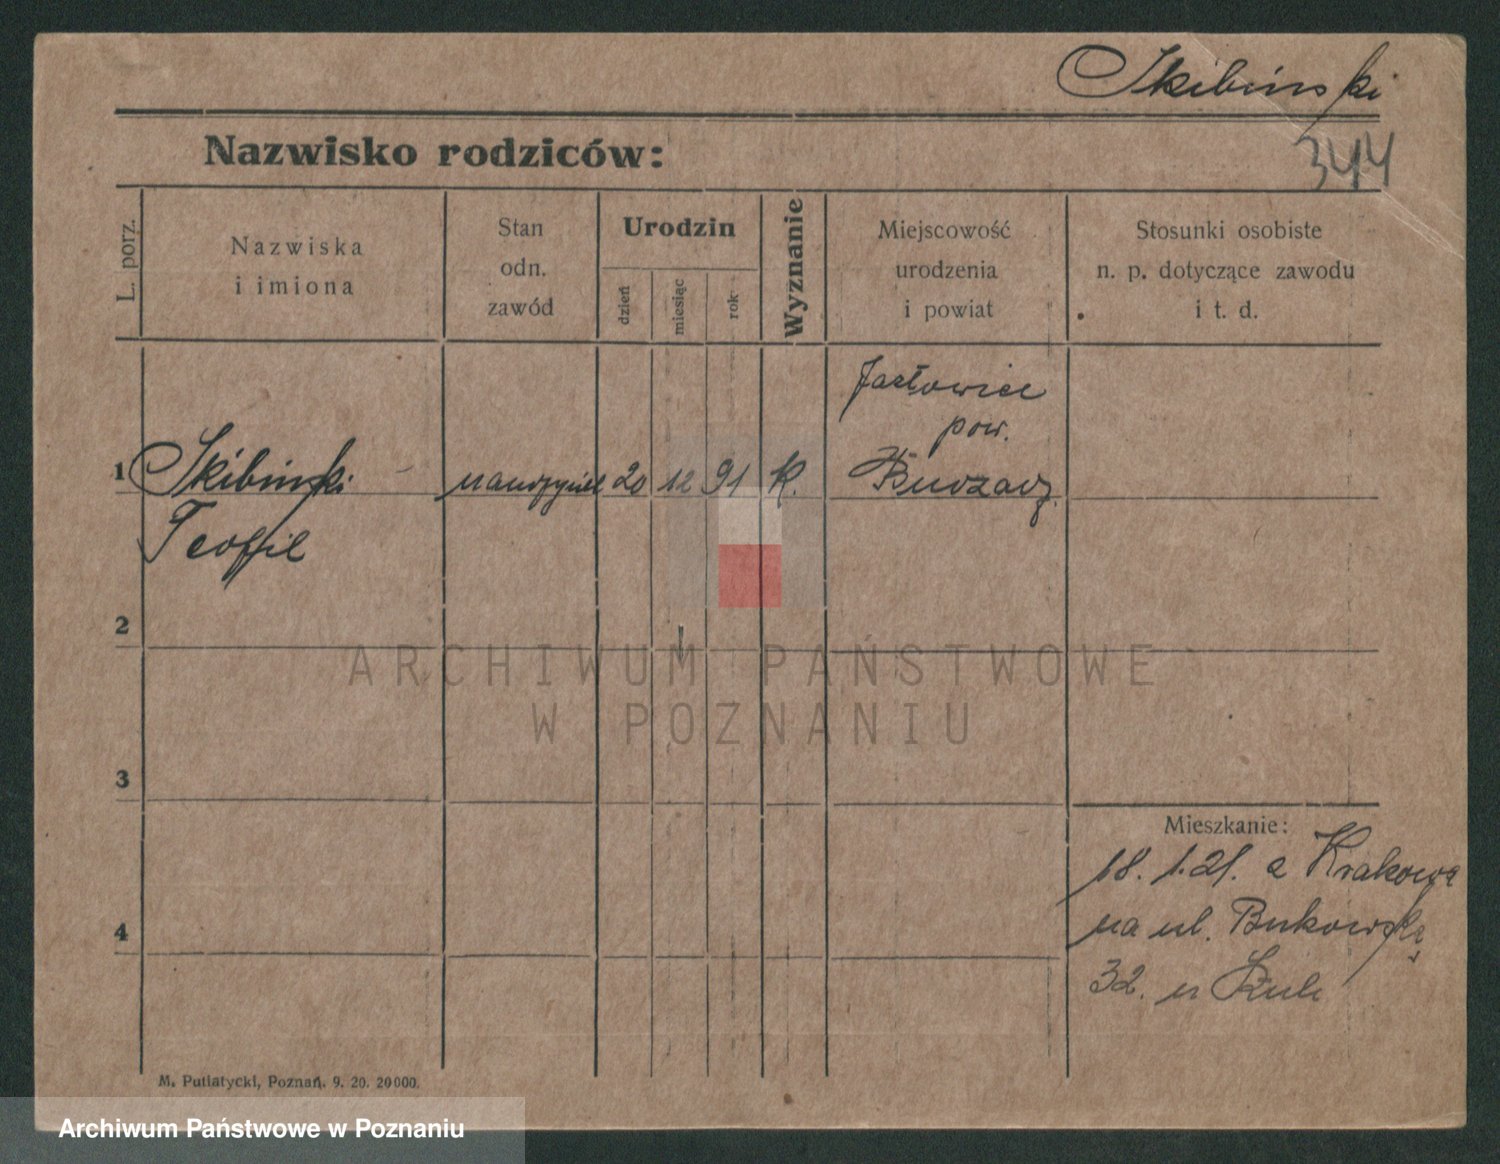 Skibiński
344
Nazwisko rodziców:
L. porz.
Nazwiska
i imiona
Stan
odn.
zawód
Urodzin
dzień
miesiąc
rok
Wyznanie
Miejscowość
urodzenia
i powiat
Stosunki osobiste
n. p. dotyczące zawodu
i t. d.
1
Skibiński
Teofil
20
12
91
k.
pow.
2
3
4
Mieszkanie:
18. 1. 21. z Krakowa
na ul. Bukowską
32. u
ARCHIWUM PAŃSTWOWE
W POZNANIU
M. Putiatycki, Poznań. 9. 20. 20000.
Archiwum Państwowe w Poznaniu